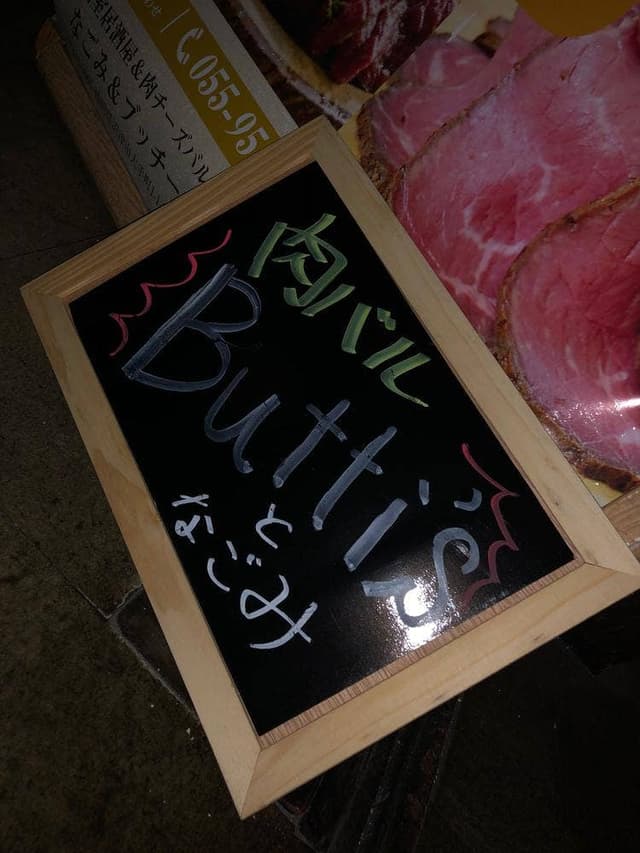 わせ
055-95
室居酒屋&肉チーズバル
なごみ&ブッチー
肉バル
Butti's
と
なごみ